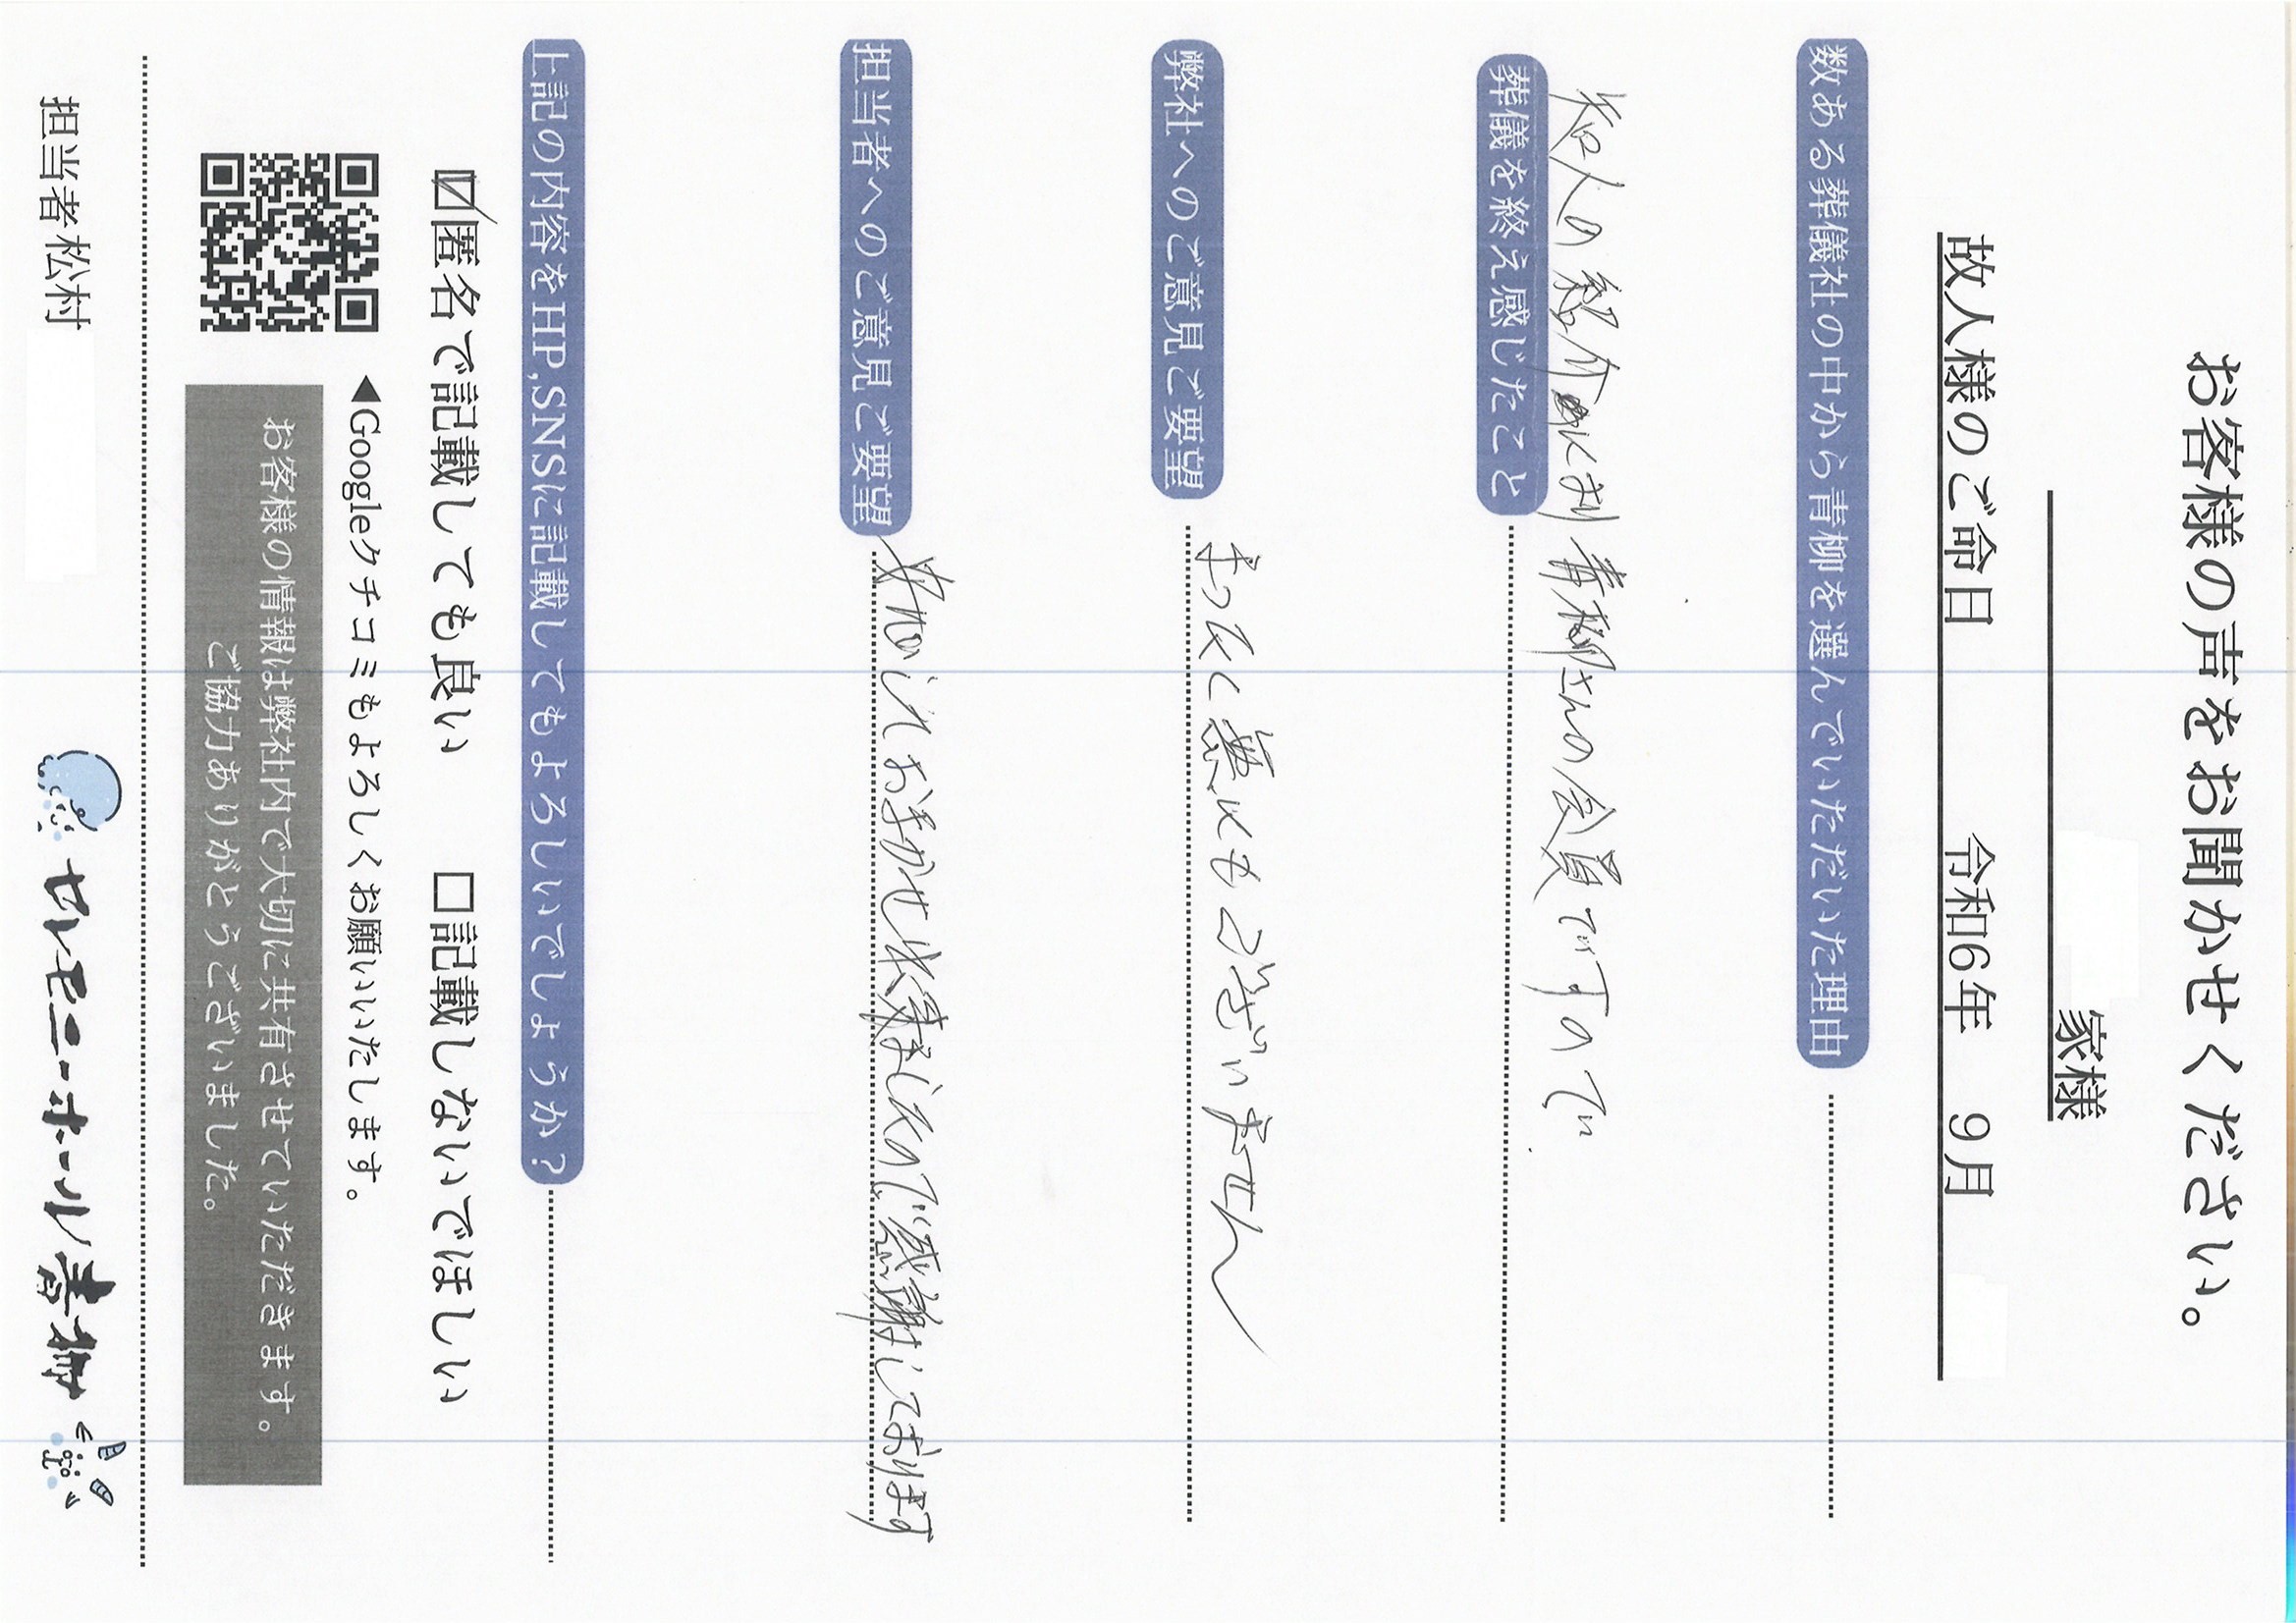 お客様の声をお聞かせください。
家様
故人様のご命日 令和6年 9月
数ある葬儀社の中から青柳を選んでいただいた理由
知人の紹介 青柳さんの会員ですので
葬儀を終え感じたこと
まったく悪くもございません
弊社へのご意見ご要望
担当者へのご意見ご要望
しておまかせ出来ましたので感謝しております
上記の内容をHP,SNSに記載してもよろしいでしょうか?
☑匿名で記載しても良い □記載しないでほしい
◀Googleクチコミもよろしくお願いいたします。
お客様の情報は弊社内で大切に共有させていただきます。
ご協力ありがとうございました。
担当者松村
セレモニーホール青柳